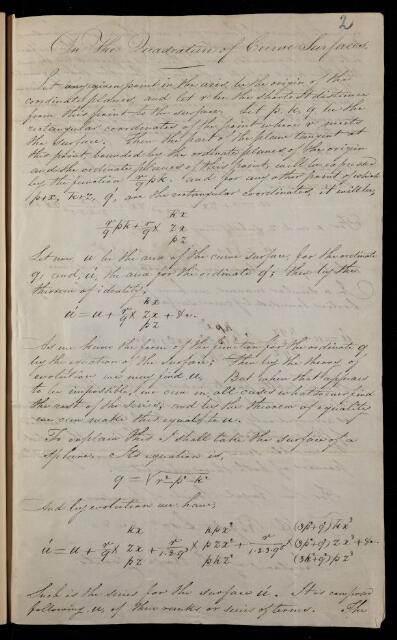 2
On The Quadrature of Curve Surfaces.
Let any given point in the axis, be the origin of the
coordinate planes, and let r be the shortest distance
from this point to the surface. Let p, k, q be the
rectangular coordinates of the point where r meets
the surface. Then the part of the plane tangent at
this point bounded by the ordinate planes of the origin
and the ordinate planes of this point, will be expressed
by the function r/q pk, and for any other point of which
p+x, k+z, q', are the rectangular coordinates, it will be,
kx
r/q pk + r/q × zx
pz
Let now, u be the area of the curve surface, for the ordinate
q, and, u', the area for the ordinate q'; then by the
theorem of identity,
kx
u' = u + r/q × zx + &c.
pz
As we have the form of the function for the ordinate q
by the equation of the surface; then by the theory of
evolution we may find u. But when that appears
to be impossible, we can in all cases whatsoever find
the rest of the series; and by the theorem of equality
we can make this equal to u.
To explain this I shall take the surface of a
sphere. Its equation is,
q = √r²-p²-k²
And by evolution we have;
kx kpx² (3p²+q²)kx³
u' = u + r/q × zx + r/1·2·q³ × pzx² + r/1·2·3·q⁵ × (3p²+q²)zx³ + &c.
pz pkz² (3k²+q²)pz³
Such is the series for the surface u'. It is composed
following u, of three ranks or series of terms. The